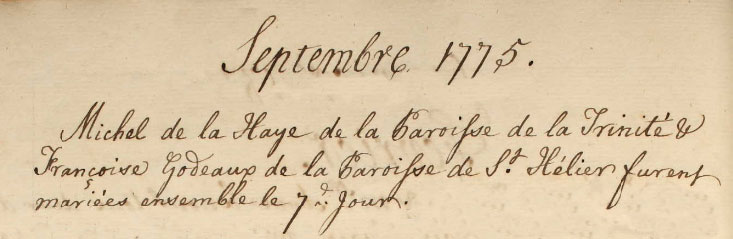 Septembre 1775.
Michel de la Haye de la Paroisse de la Trinité &
Françoise Godeaux de la Paroisse de St. Hélier furent
mariées ensemble le 7d. Jour.